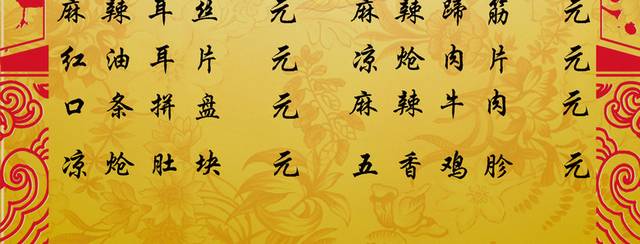 麻辣耳丝 元 麻辣蹄筋 元
红油耳片 元 凉炝肉片 元
口条拼盘 元 麻辣牛肉 元
凉炝肚块 元 五香鸡胗 元